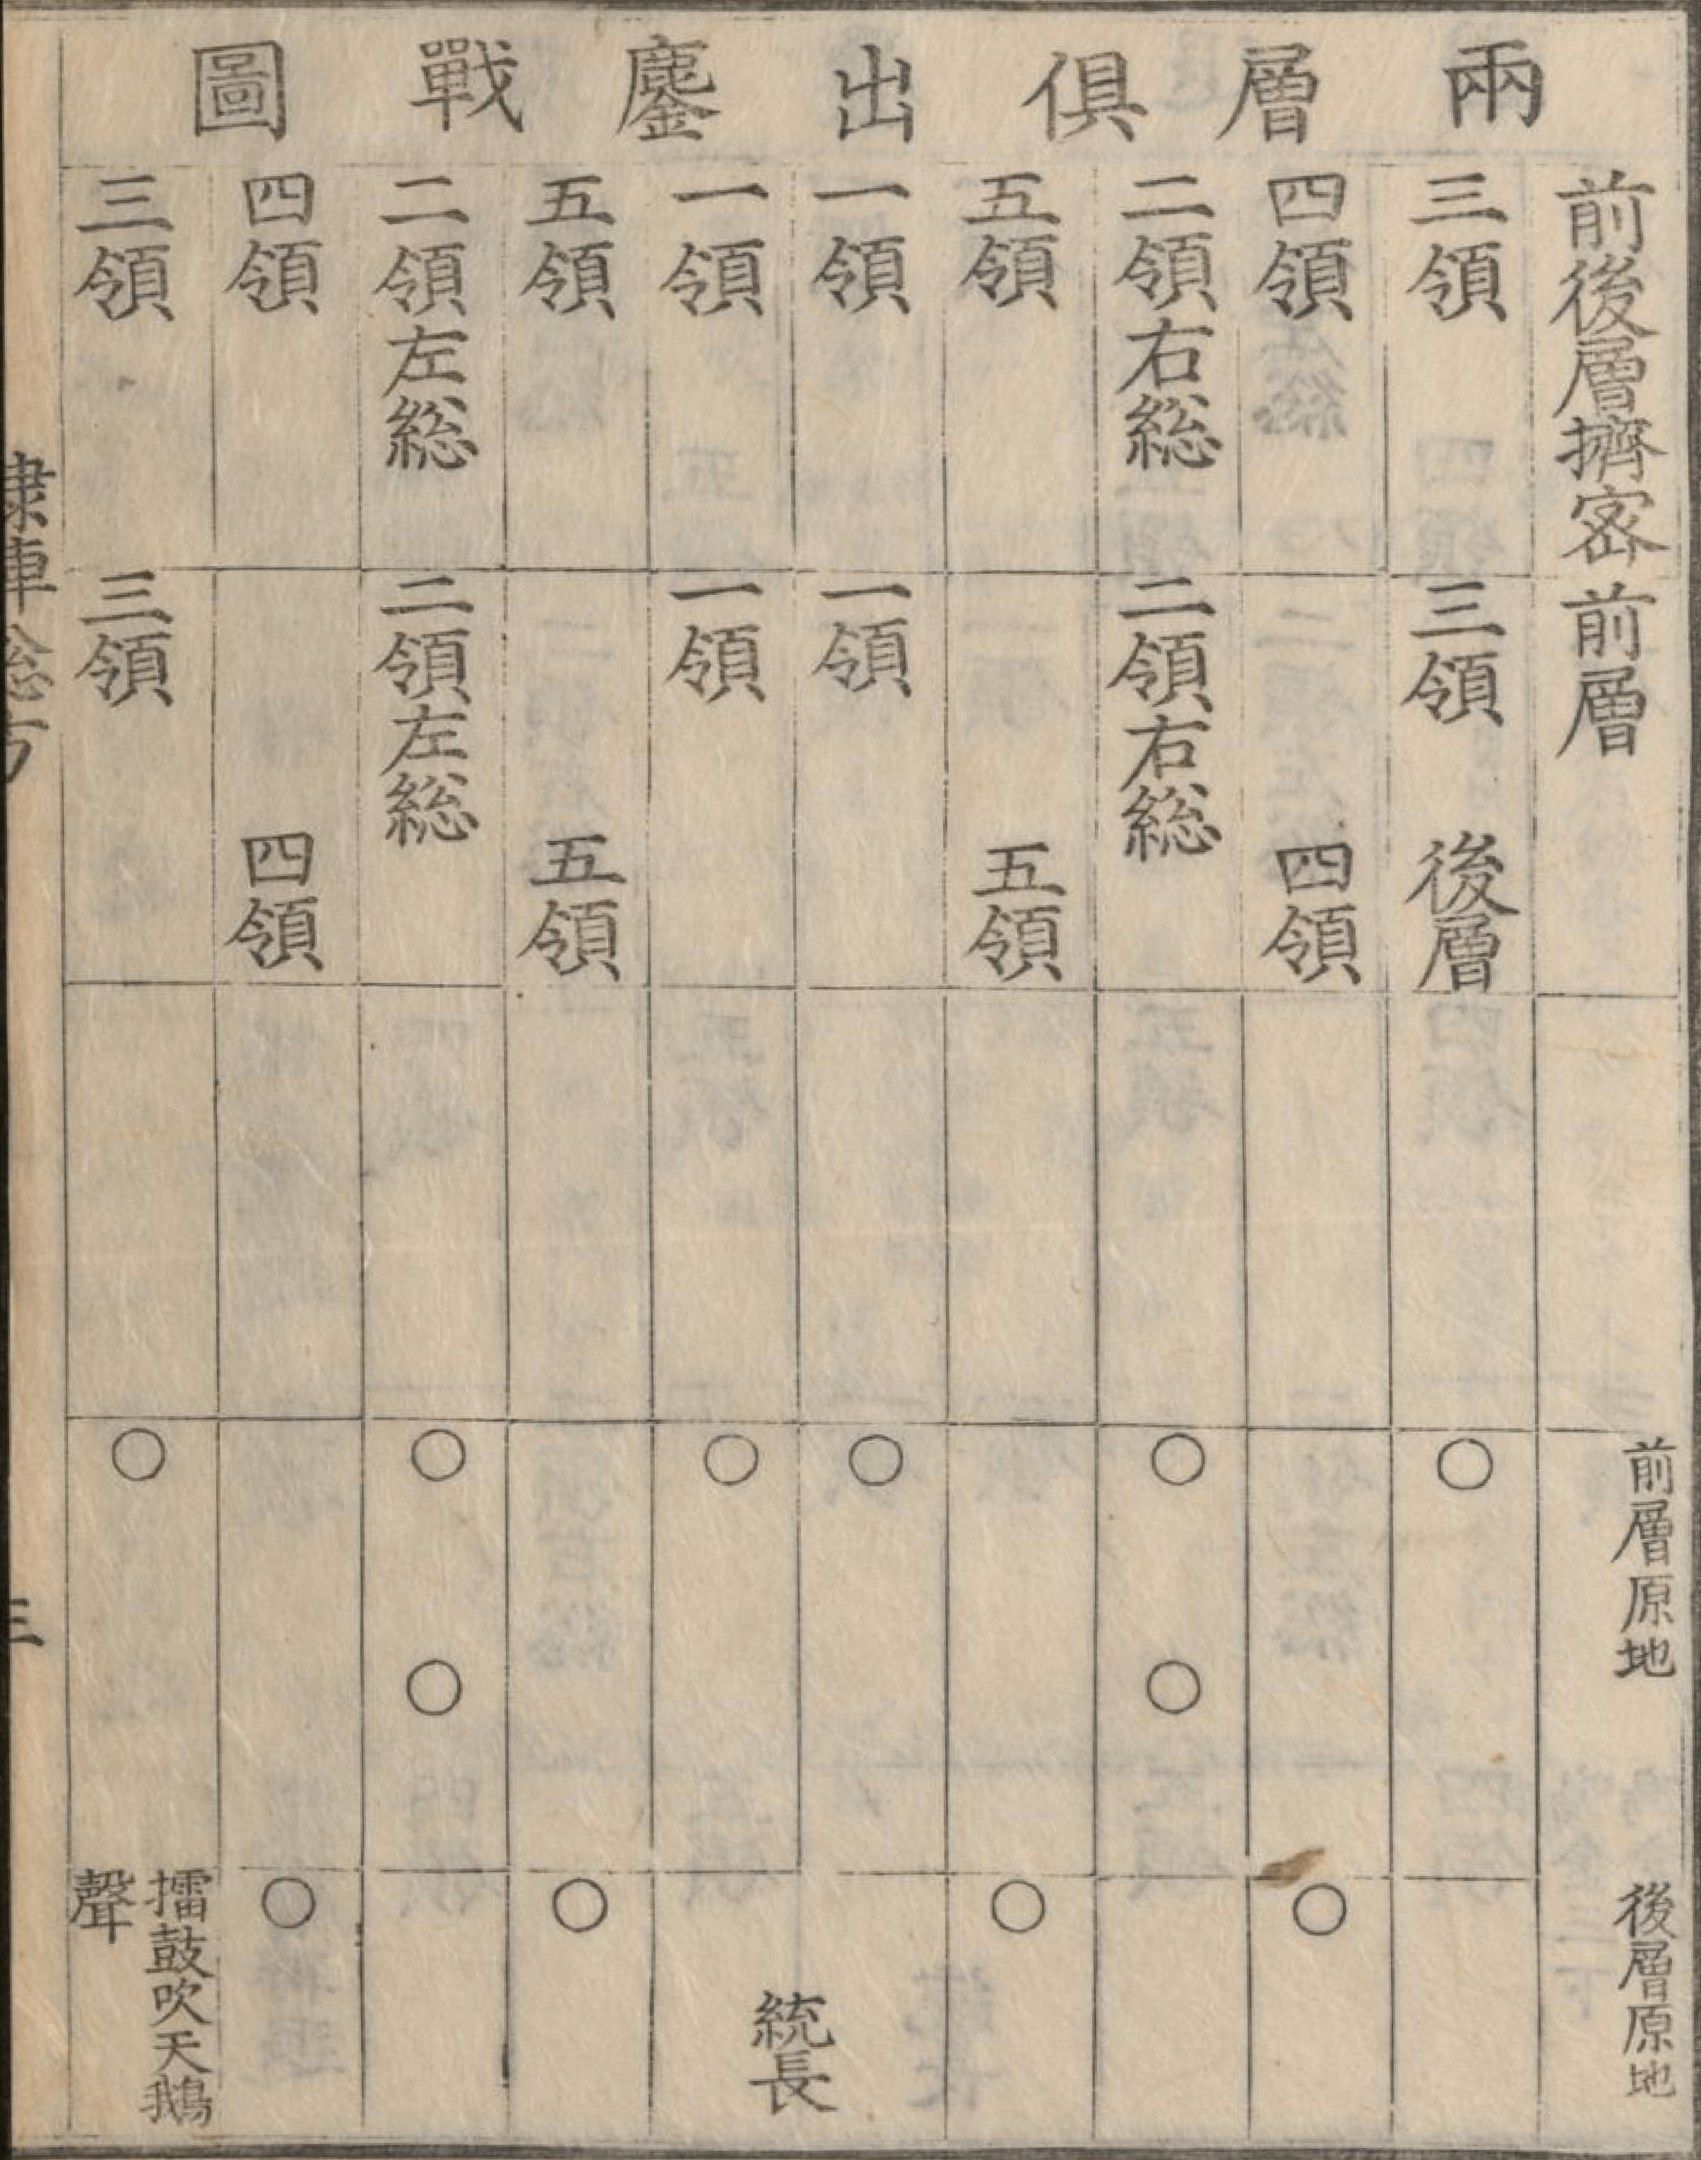 兩層俱出鏖戰圖
前後層擠密
三領
四領
二領右総
五領
一領
一領
五領
二領左総
四領
三領
前層
三領
後層
四領
二領右総
五領
一領
一領
五領
二領左総
四領
三領
前層原地
後層原地
統長
擂鼓吹天鵝
聲
三